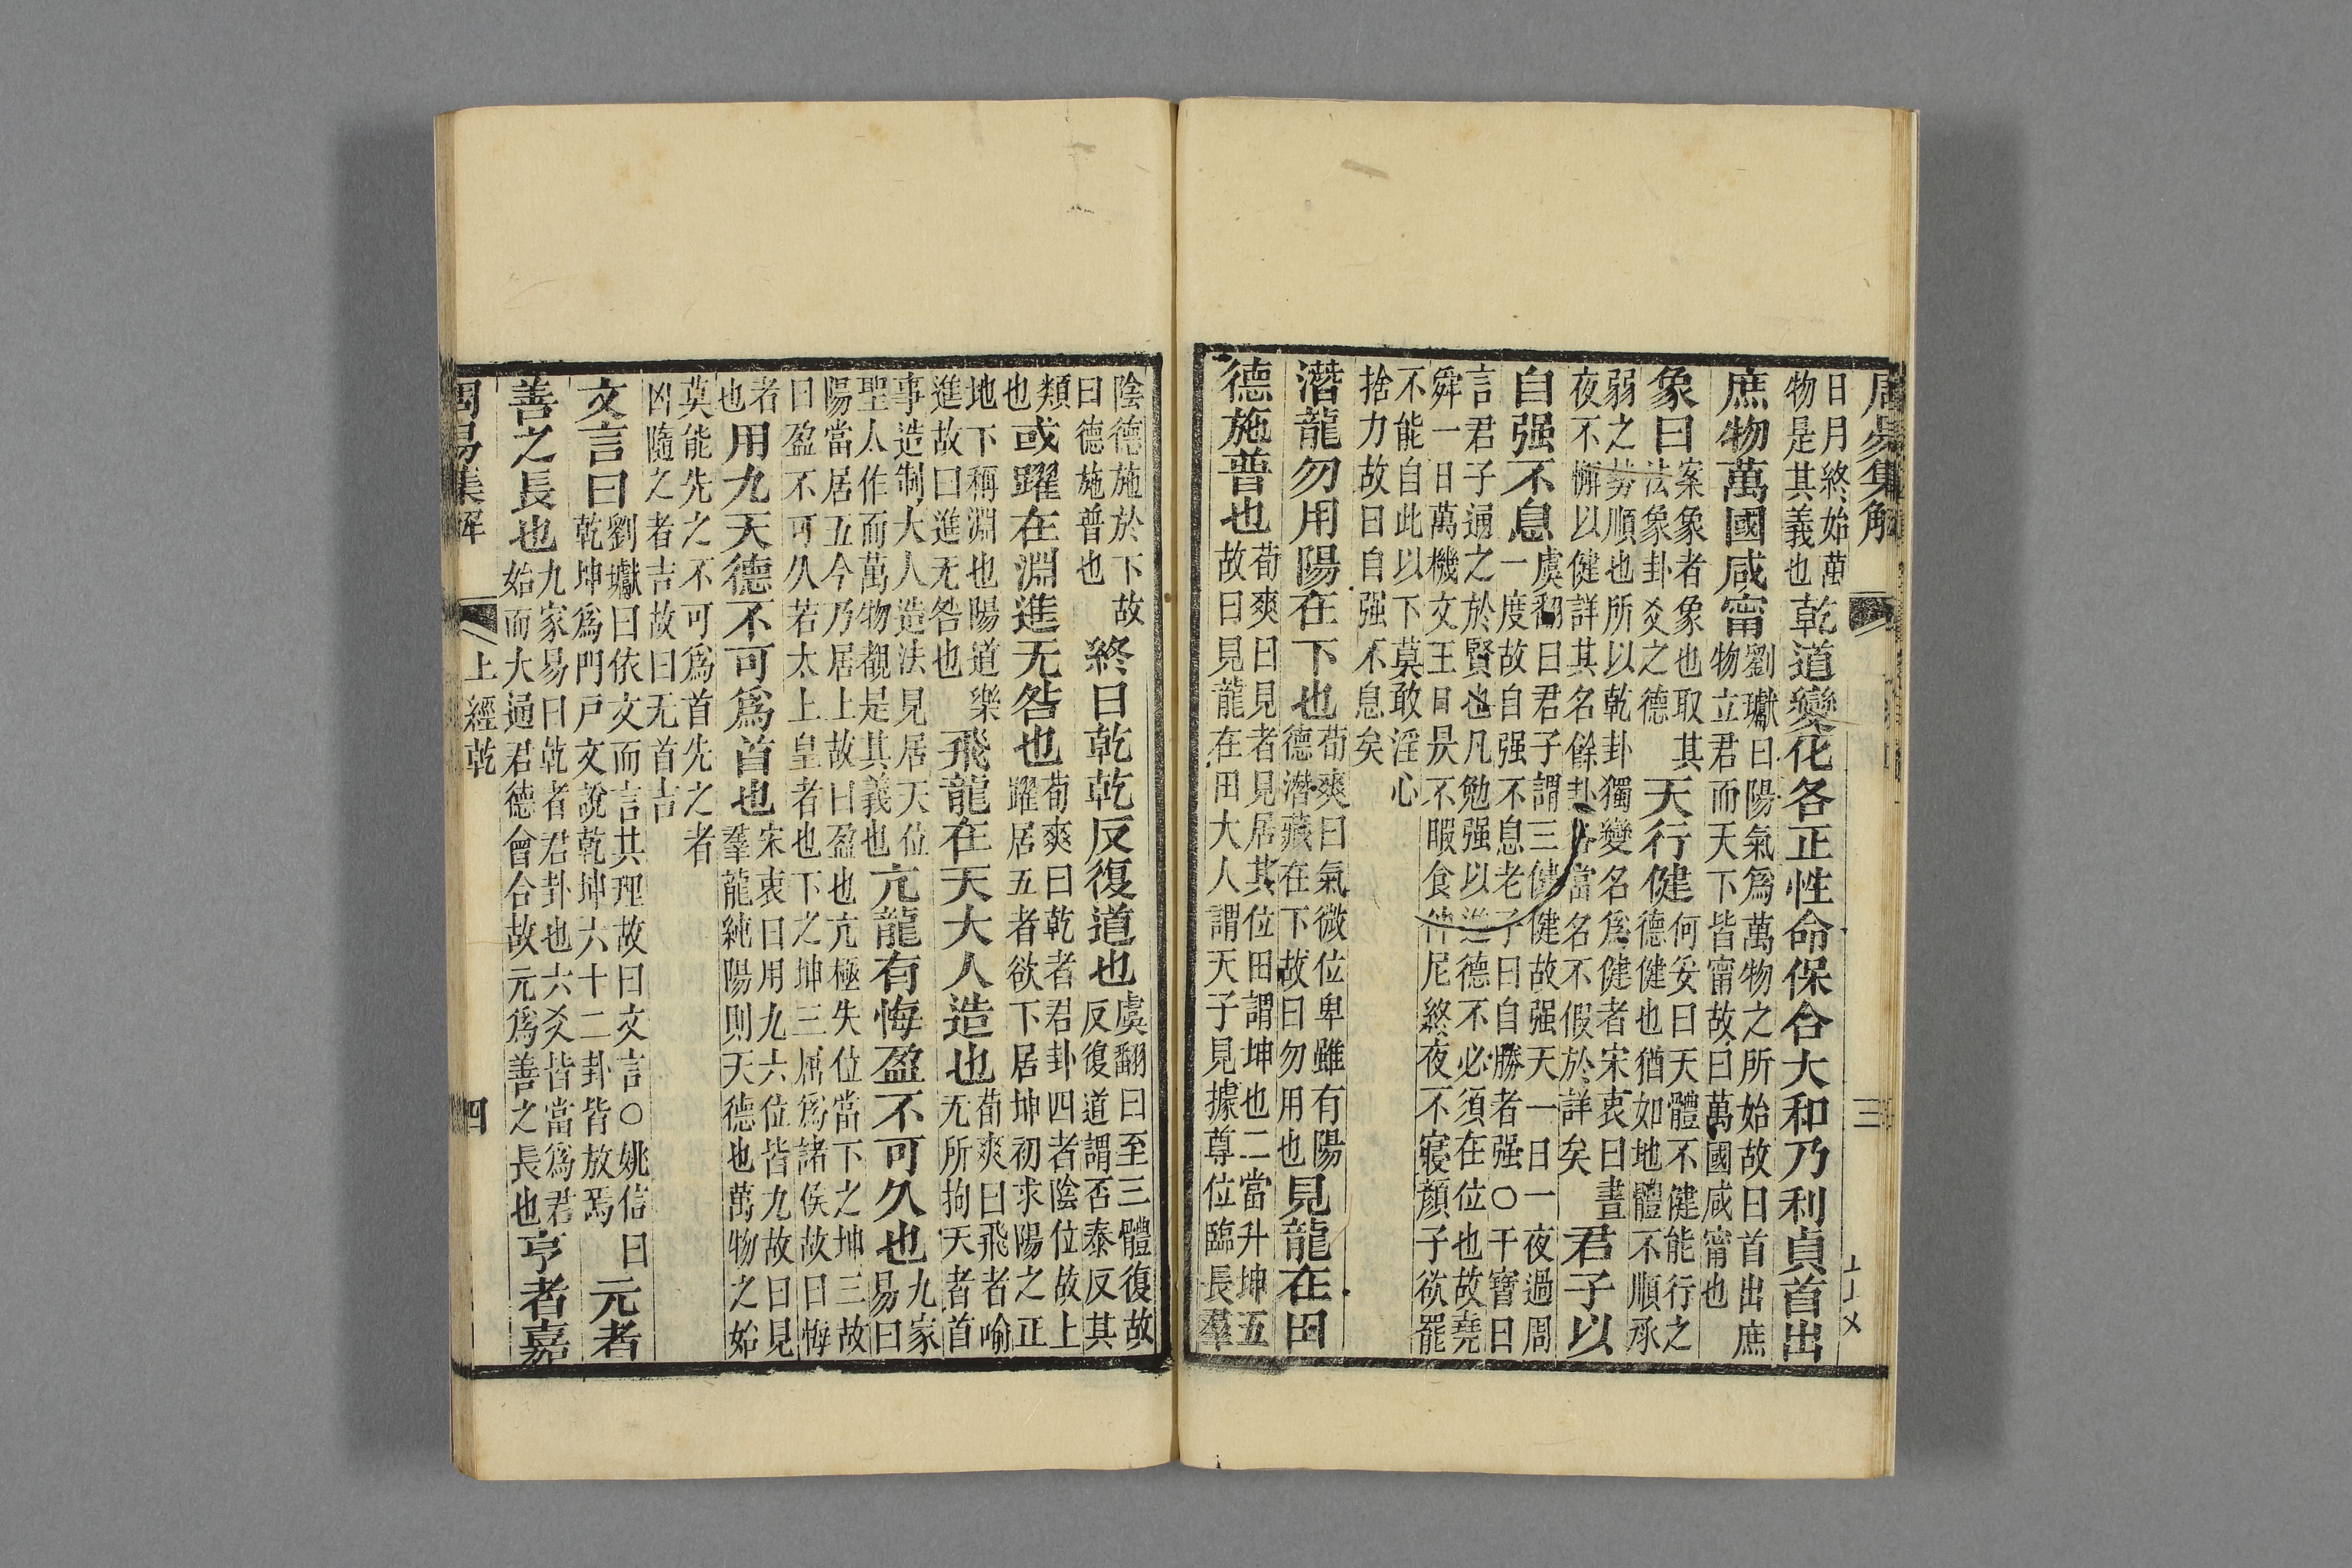 周易集解 三
日月終始萬物是其義也乾道變化各正性命保合大和乃利貞首出
庶物萬國咸甯劉瓛曰陽氣爲萬物之所始故曰首出庶物立君而天下皆甯故曰萬國咸甯也
象曰案象者象也取其法象卦爻之德天行健何妥曰天體不健能行之德健也猶如地體不順承
弱之勢順也所以乾卦獨變名爲健者宋衷曰晝夜不懈以健詳其名餘卦各當名不假於詳矣君子以
自强不息虞翻曰君子謂三健健故强天一日一夜過周一度故自强不息老子曰自勝者强○干寶曰
言君子通之於賢也凡勉强以進德不必須在位也故堯舜一日萬機文王日昃不暇食仲尼終夜不寢顏子欲罷
不能自此以下莫敢淫心捨力故曰自强不息矣
潛龍勿用陽在下也荀爽曰氣微位卑雖有陽德潛藏在下故曰勿用也見龍在田
德施普也荀爽曰見者見居其位田謂坤也二當升坤五故曰見龍在田大人謂天子見據尊位臨長羣
陰德施於下故曰德施普也終日乾乾反復道也虞翻曰至三體復故反復道謂否泰反其
類也或躍在淵進无咎也荀爽曰乾者君卦四者陰位故上躍居五者欲下居坤初求陽之正
地下稱淵也陽道樂進故曰進无咎也飛龍在天大人造也荀爽曰飛者喻无所拘天者首
事造制大人造法見居天位聖人作而萬物覩是其義也亢龍有悔盈不可久也九家易曰
陽當居五今乃居上故曰盈也亢極失位當下之坤三故曰盈不可久若太上皇者也下之坤三屈爲諸侯故曰悔
者也用九天德不可爲首也宋衷曰用九六位皆九故曰見羣龍純陽則天德也萬物之始
莫能先之不可爲首先之者凶隨之者吉故曰无首吉
文言曰劉瓛曰依文而言其理故曰文言○姚信曰乾坤爲門戸文說乾坤六十二卦皆放焉元者
善之長也九家易曰乾者君卦也六爻皆當爲君始而大通君德會合故元爲善之長也亨者嘉
周易集解 上經 乾 四